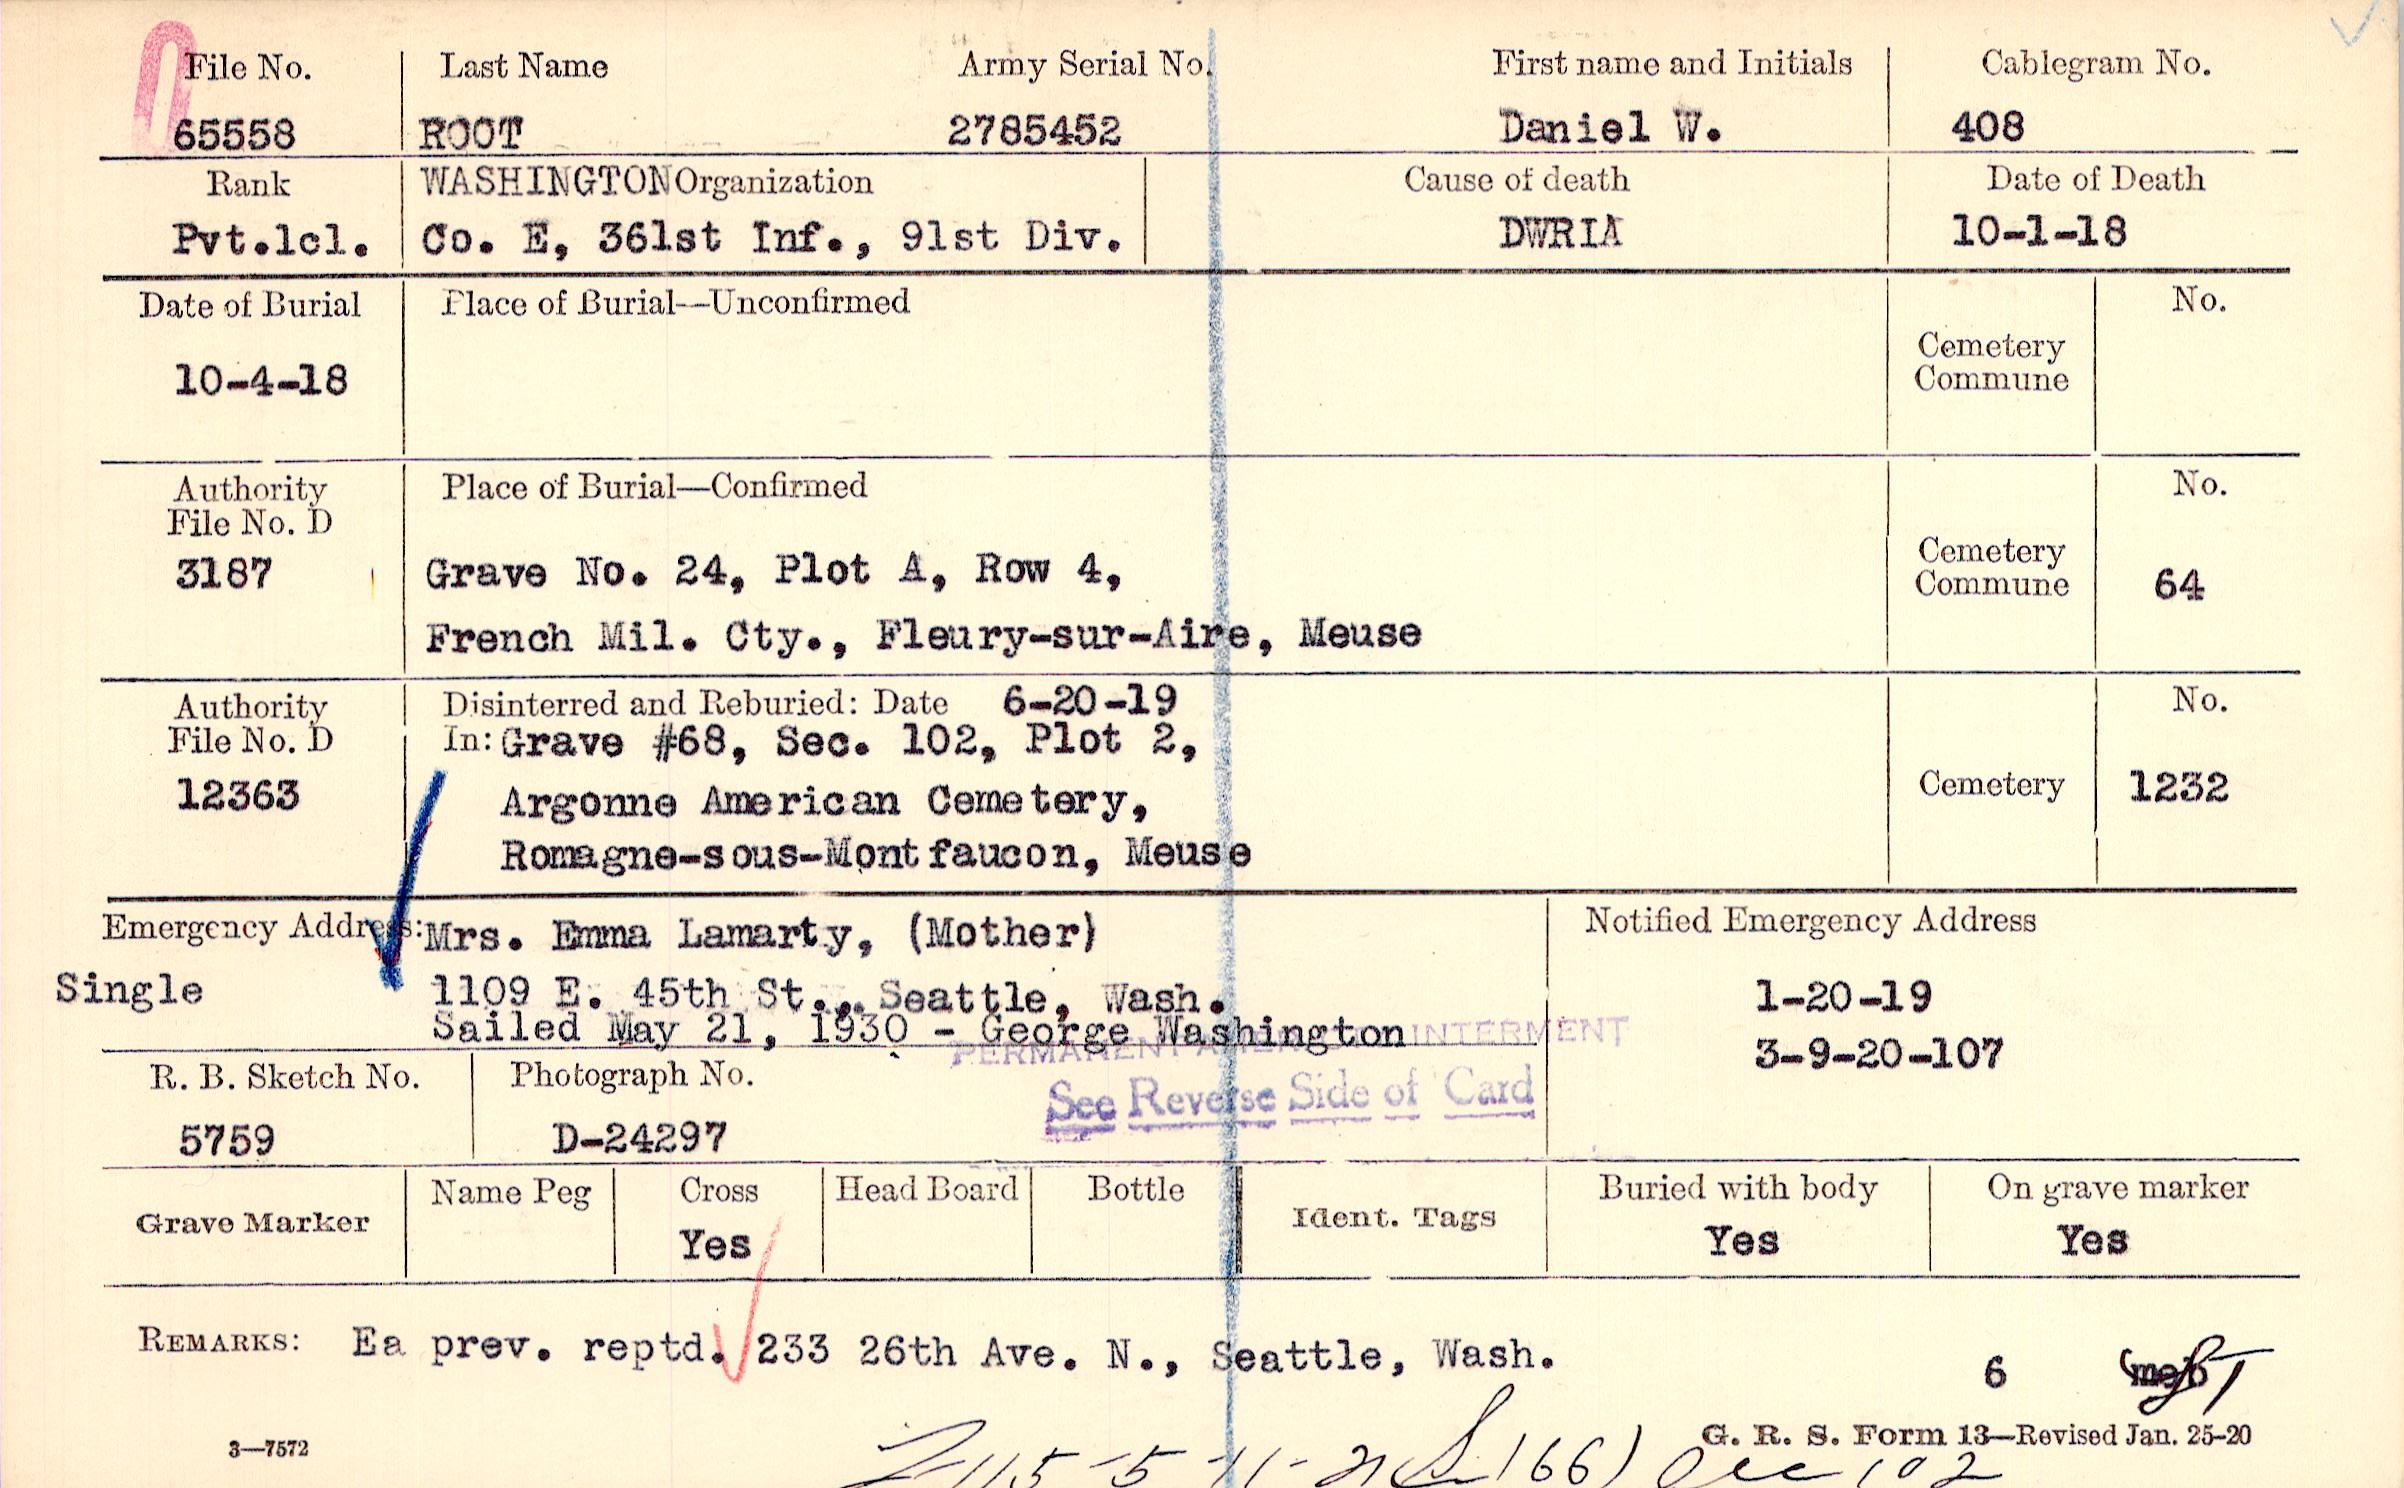 File No. Last Name Army Serial No. First name and Initials Cablegram No.
65558 ROOT 2785452 Daniel W. 408
Rank WASHINGTON Organization Cause of death Date of Death
Pvt.1cl. Co. E, 361st Inf., 91st Div. DWRIA 10-1-18
Date of Burial Place of Burial—Unconfirmed No.
Cemetery
Commune
10-4-18
Authority Place of Burial—Confirmed No.
File No. D
3187 Grave No. 24, Plot A, Row 4, Cemetery
Commune 64
French Mil. Cty., Fleury-sur-Aire, Meuse
Authority Disinterred and Reburied: Date 6-20-19 No.
File No. D In: Grave #68, Sec. 102, Plot 2,
12363 Argonne American Cemetery, Cemetery 1232
Romagne-sous-Montfaucon, Meuse
Emergency Address: Mrs. Emma Lamarty, (Mother) Notified Emergency Address
Single 1109 E. 45th St., Seattle, Wash. 1-20-19
Sailed May 21, 1930 - George Washington
PERMANENT INTERMENT 3-9-20-107
R. B. Sketch No. Photograph No.
See Reverse Side of Card
5759 D-24297
Grave Marker Name Peg Cross Head Board Bottle Ident. Tags Buried with body On grave marker
Yes Yes Yes
REMARKS: Ea prev. reptd. 233 26th Ave. N., Seattle, Wash. 6
3—7572 G. R. S. Form 13—Revised Jan. 25-20